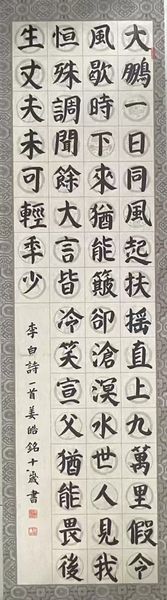 大鵬一日同風起扶搖直上九萬里假令
風歇時下來猶能簸卻滄溟水世人見我
恒殊調聞餘大言皆冷笑宣父猶能畏後
生丈夫未可輕秊少
李白詩一首姜皓銘十八歲書